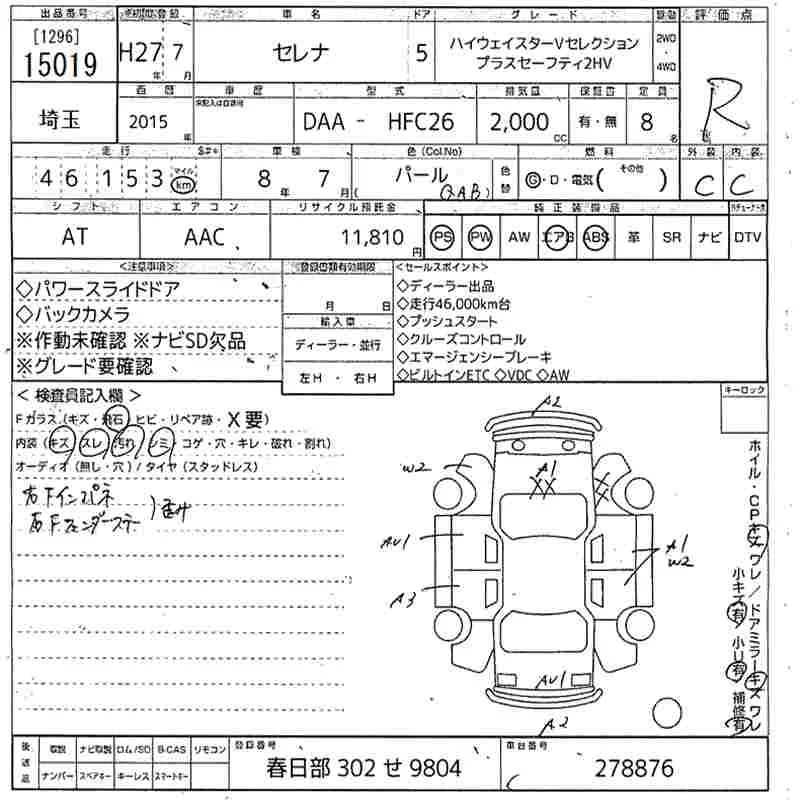 出品番号 初度登録 車名 ドア グレード 駆動 評価点
[1296]
15019 H27年 7月 セレナ 5 ハイウェイスターVセレクション
プラスセーフティ2HV
2WD・4WD
R
西暦 車歴 型式 排気量 保証書 定員
未記入は自家用
埼玉 2015年 DAA - HFC26 2,000cc 有・無 8名
走行 車検 色(Col.No) 燃料 外装 内装
46153 マイル km 8年 7月 パール(QAB) 色替 G・D・電気( その他 ) C C
シフト エアコン リサイクル預託金 純正装備品
AT AAC 11,810円 PS PW AW エアB ABS 革 SR ナビ DTV
<注意事項> 登録書類有効期限 <セールスポイント>
◇パワースライドドア
◇バックカメラ
※作動未確認 ※ナビSD欠品
※グレード要確認
月 日
輸入車
ディーラー・並行
左H・右H
◇ディーラー出品
◇走行46,000km台
◇プッシュスタート
◇クルーズコントロール
◇エマージェンシーブレーキ
◇ビルトインETC ◇VDC ◇AW
キーロック
<検査員記入欄>
Fガラス(キズ・飛石・ヒビ・リペア跡・X要)
内装(キズ・スレ・汚れ・シミ・コゲ・穴・キレ・破れ・割れ)
オーディオ(無し・穴)/タイヤ(スタッドレス)
右Fインパネ
右Fフェンダーステー
A2
W2 A1 XX
AU1 A1
W2
A3
AU1
A2
ホイル・CPキズ ワレ/ドアミラーキズ ワレ
小キズ有 小U有 補修有
後送品 取説 ナビ取説 ロム/SD B-CAS リモコン
ナンバー スペアキー キーレス スマートキー
登録番号 車台番号
春日部 302 せ 9804 278876